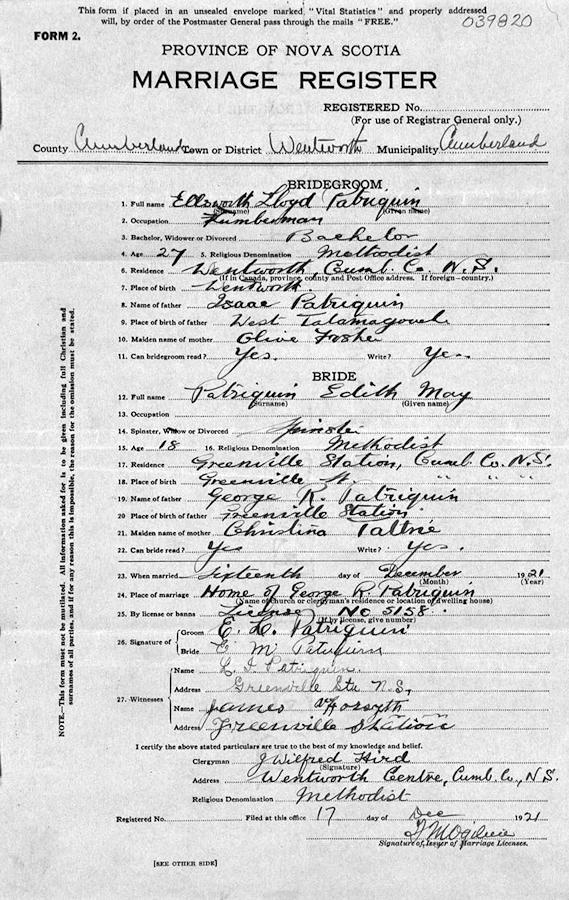 This form if placed in an unsealed envelope marked "Vital Statistics" and properly addressed
will, by order of the Postmaster General pass through the mails "FREE."
039820
FORM 2.
PROVINCE OF NOVA SCOTIA
MARRIAGE REGISTER
REGISTERED No.
(For use of Registrar General only.)
County Cumberland Town or District Wentworth Municipality Cumberland
BRIDEGROOM
1. Full name Ellsworth Lloyd Patriquin
(Surname) (Given name)
2. Occupation Lumberman
3. Bachelor, Widower or Divorced Bachelor
4. Age 27 5. Religious Denomination Methodist
6. Residence Wentworth, Cumb. Co. N.S.
(If in Canada, province, county and Post Office address. If foreign—country.)
7. Place of birth Wentworth.
8. Name of father Isaac Patriquin
9. Place of birth of father West
10. Maiden name of mother Olive
11. Can bridegroom read? Yes. Write? Yes
BRIDE
12. Full name Patriquin Edith May
(Surname) (Given name)
13. Occupation
14. Spinster, Widow or Divorced Spinster
15. Age 18 16. Religious Denomination Methodist
17. Residence Greenville Station, Cumb. Co. N.S.
18. Place of birth Greenville St. " " "
19. Name of father George R. Patriquin
20. Place of birth of father Greenville Station
21. Maiden name of mother Christina Tattrie
22. Can bride read? Yes Write? Yes.
23. When married Sixteenth day of December 1921
(Month) (Year)
24. Place of marriage Home of George R. Patriquin
(Name of church or clergyman's residence or location of dwelling house)
25. By license or banns License No 5158
(If by license, give number)
26. Signature of Groom E. L. Patriquin
Bride E M Patriquin
27. Witnesses Name L. I. Patriquin.
Address Greenville Sta N.S.
Name James Forsyth
Address Greenville Station
I certify the above stated particulars are true to the best of my knowledge and belief.
Clergyman J Wilfred Hird
(Signature)
Address Wentworth Centre, Cumb. Co., N.S.
Religious Denomination Methodist
Registered No. Filed at this office 17 day of Dec 1921
Signature of Issuer of Marriage Licenses.
[SEE OTHER SIDE]
NOTE.—This form must not be mutilated. All information asked for is to be given including full Christian and
surnames of all parties, and if for any reason this is impossible, the reason for the omission must be stated.